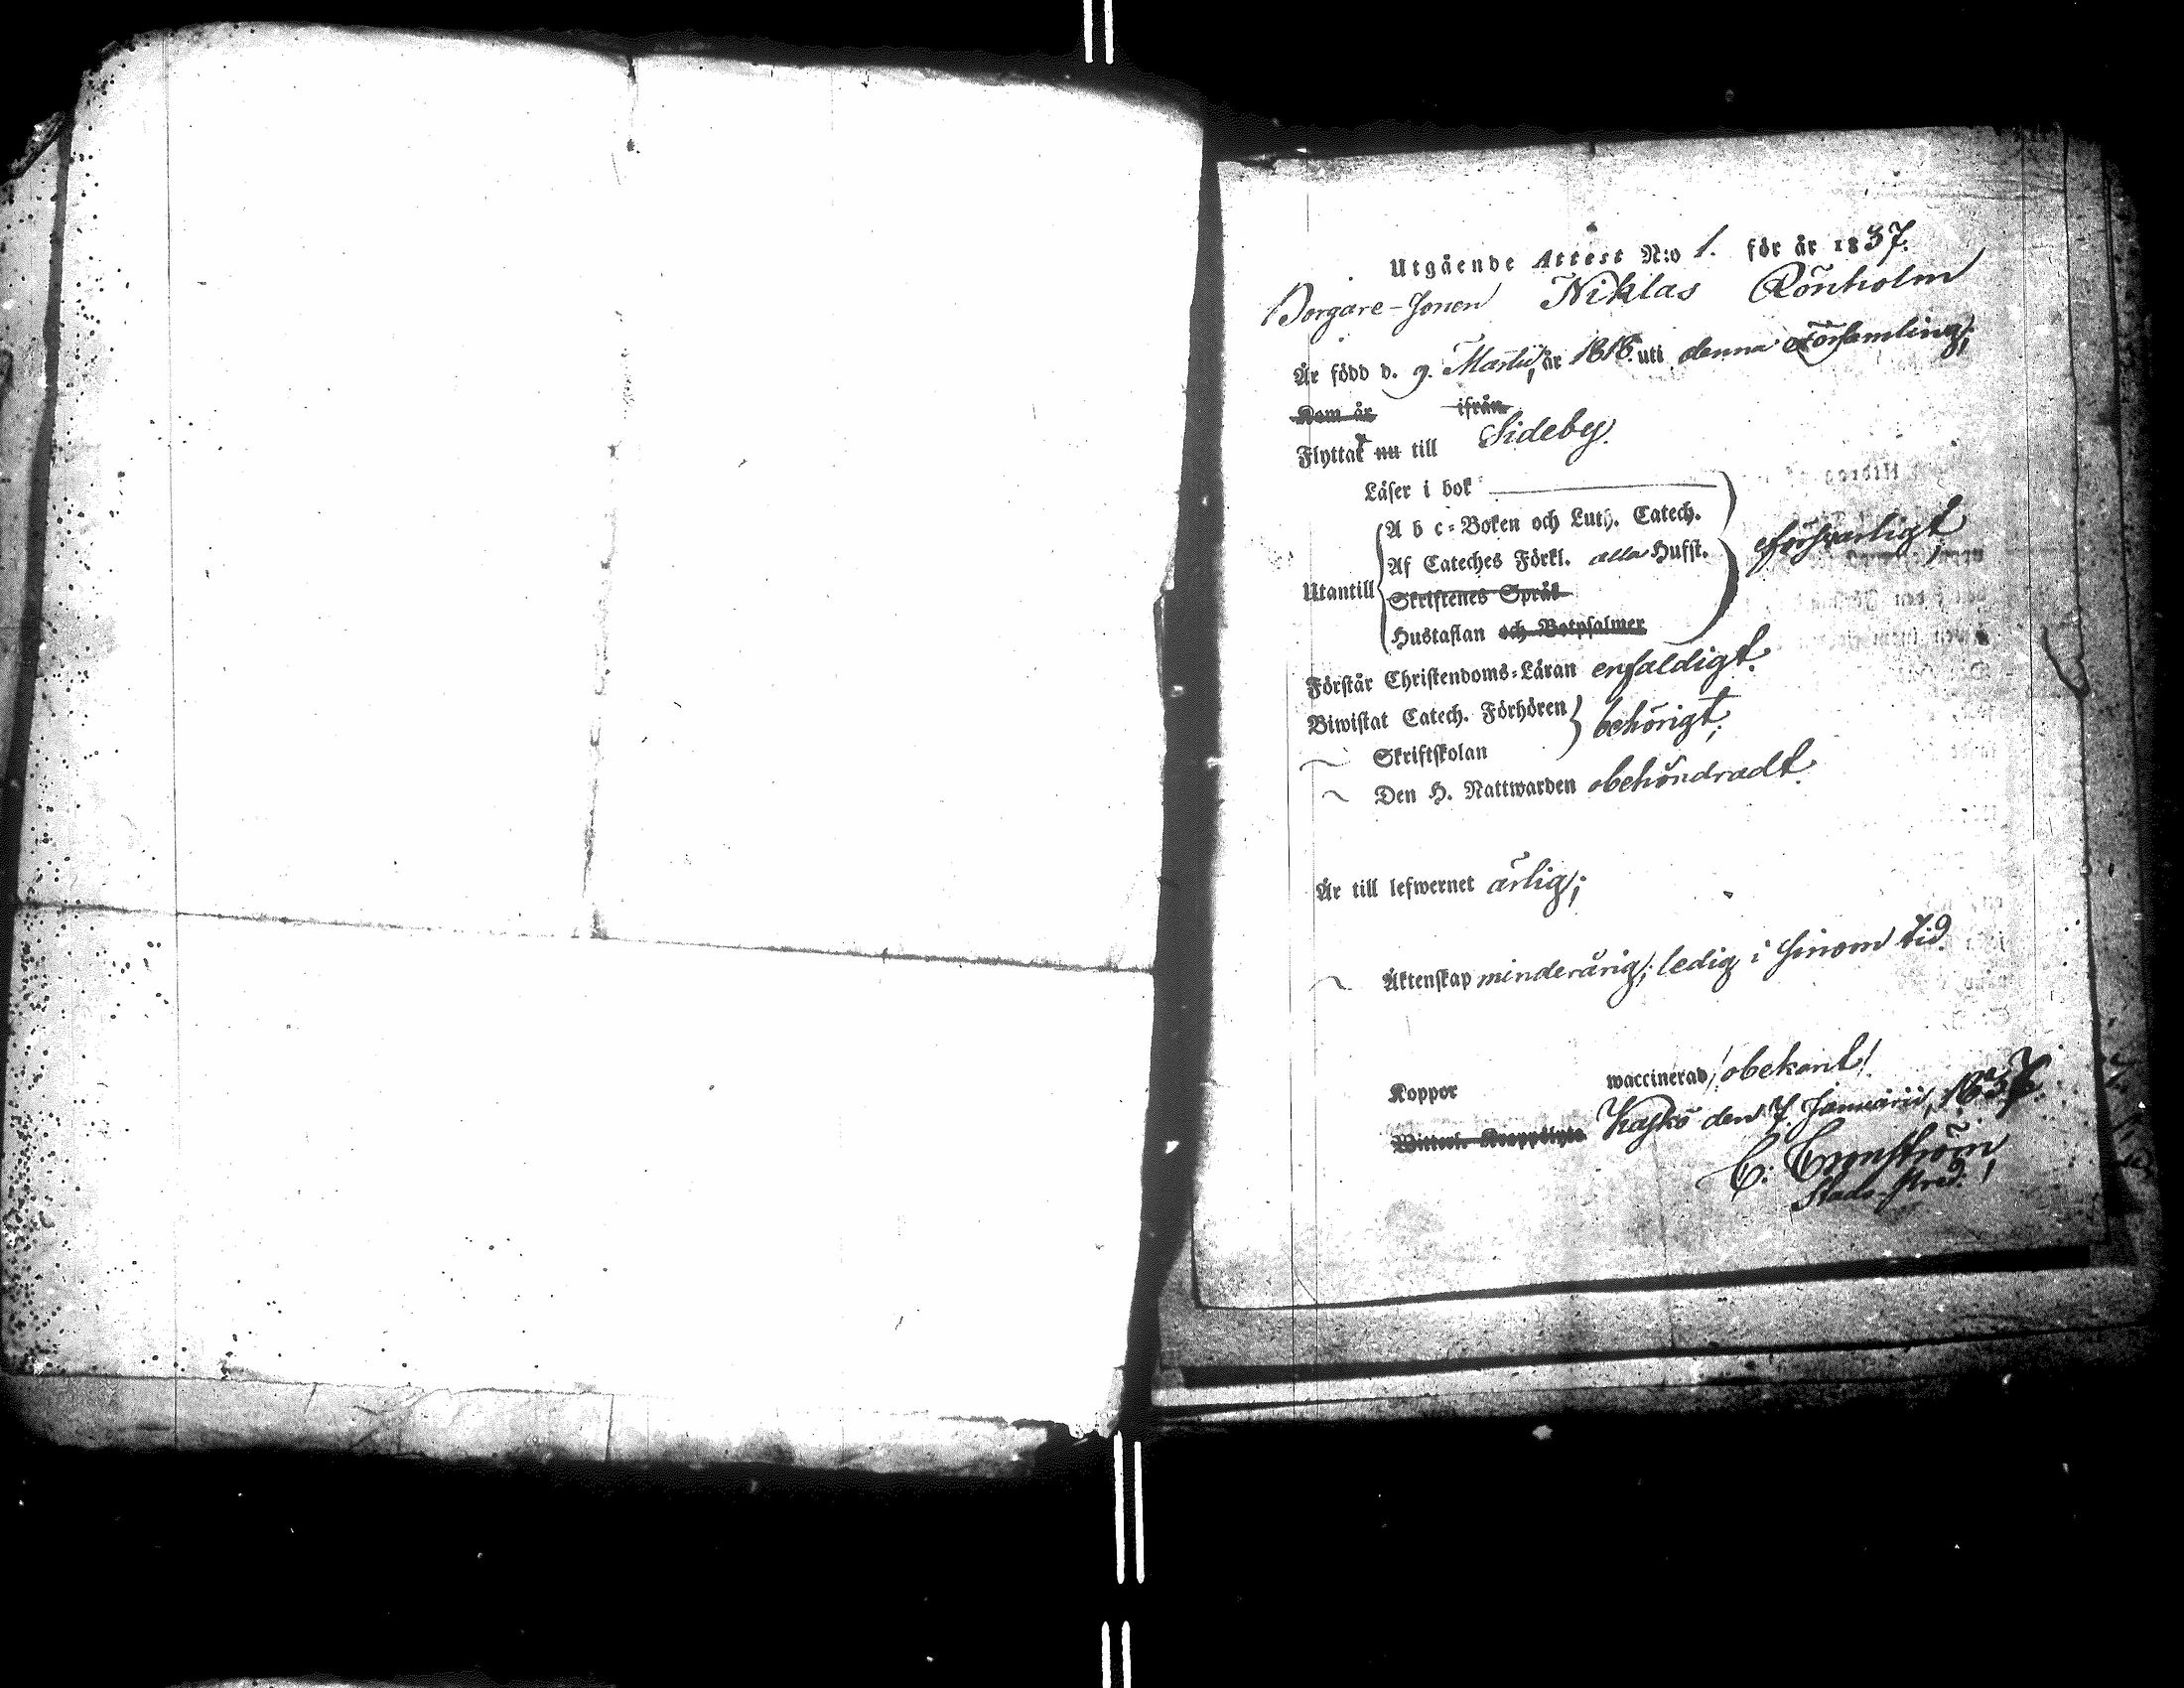 Utgående Attest N:o 1. för år 1837.
Borgare-Sonen Niklas Rönholm
Är född d. 9. Martii, år 1818. uti denna Församling;
Kom år ifrån
Flyttat nu till Sideby.
Läser i bok
A b c-Boken och Luth. Catech.
Af Cateches Förkl. alla Hufst. försvarligt
Utantill
Skriftenes Språk
Hustaflan och Botpsalmer
Förstår Christendoms-Läran enfaldigt.
Biwistat Catech. Förhören behörigt;
Skriftskolan
Den H. Nattwarden obehindradt.
Är till lefwernet ärlig;
Äktenskap minderårig; ledig i sinom tid.
Koppor waccinerad/obekant/
Kaskö den 7 Januarii 1837.
C: Cronström